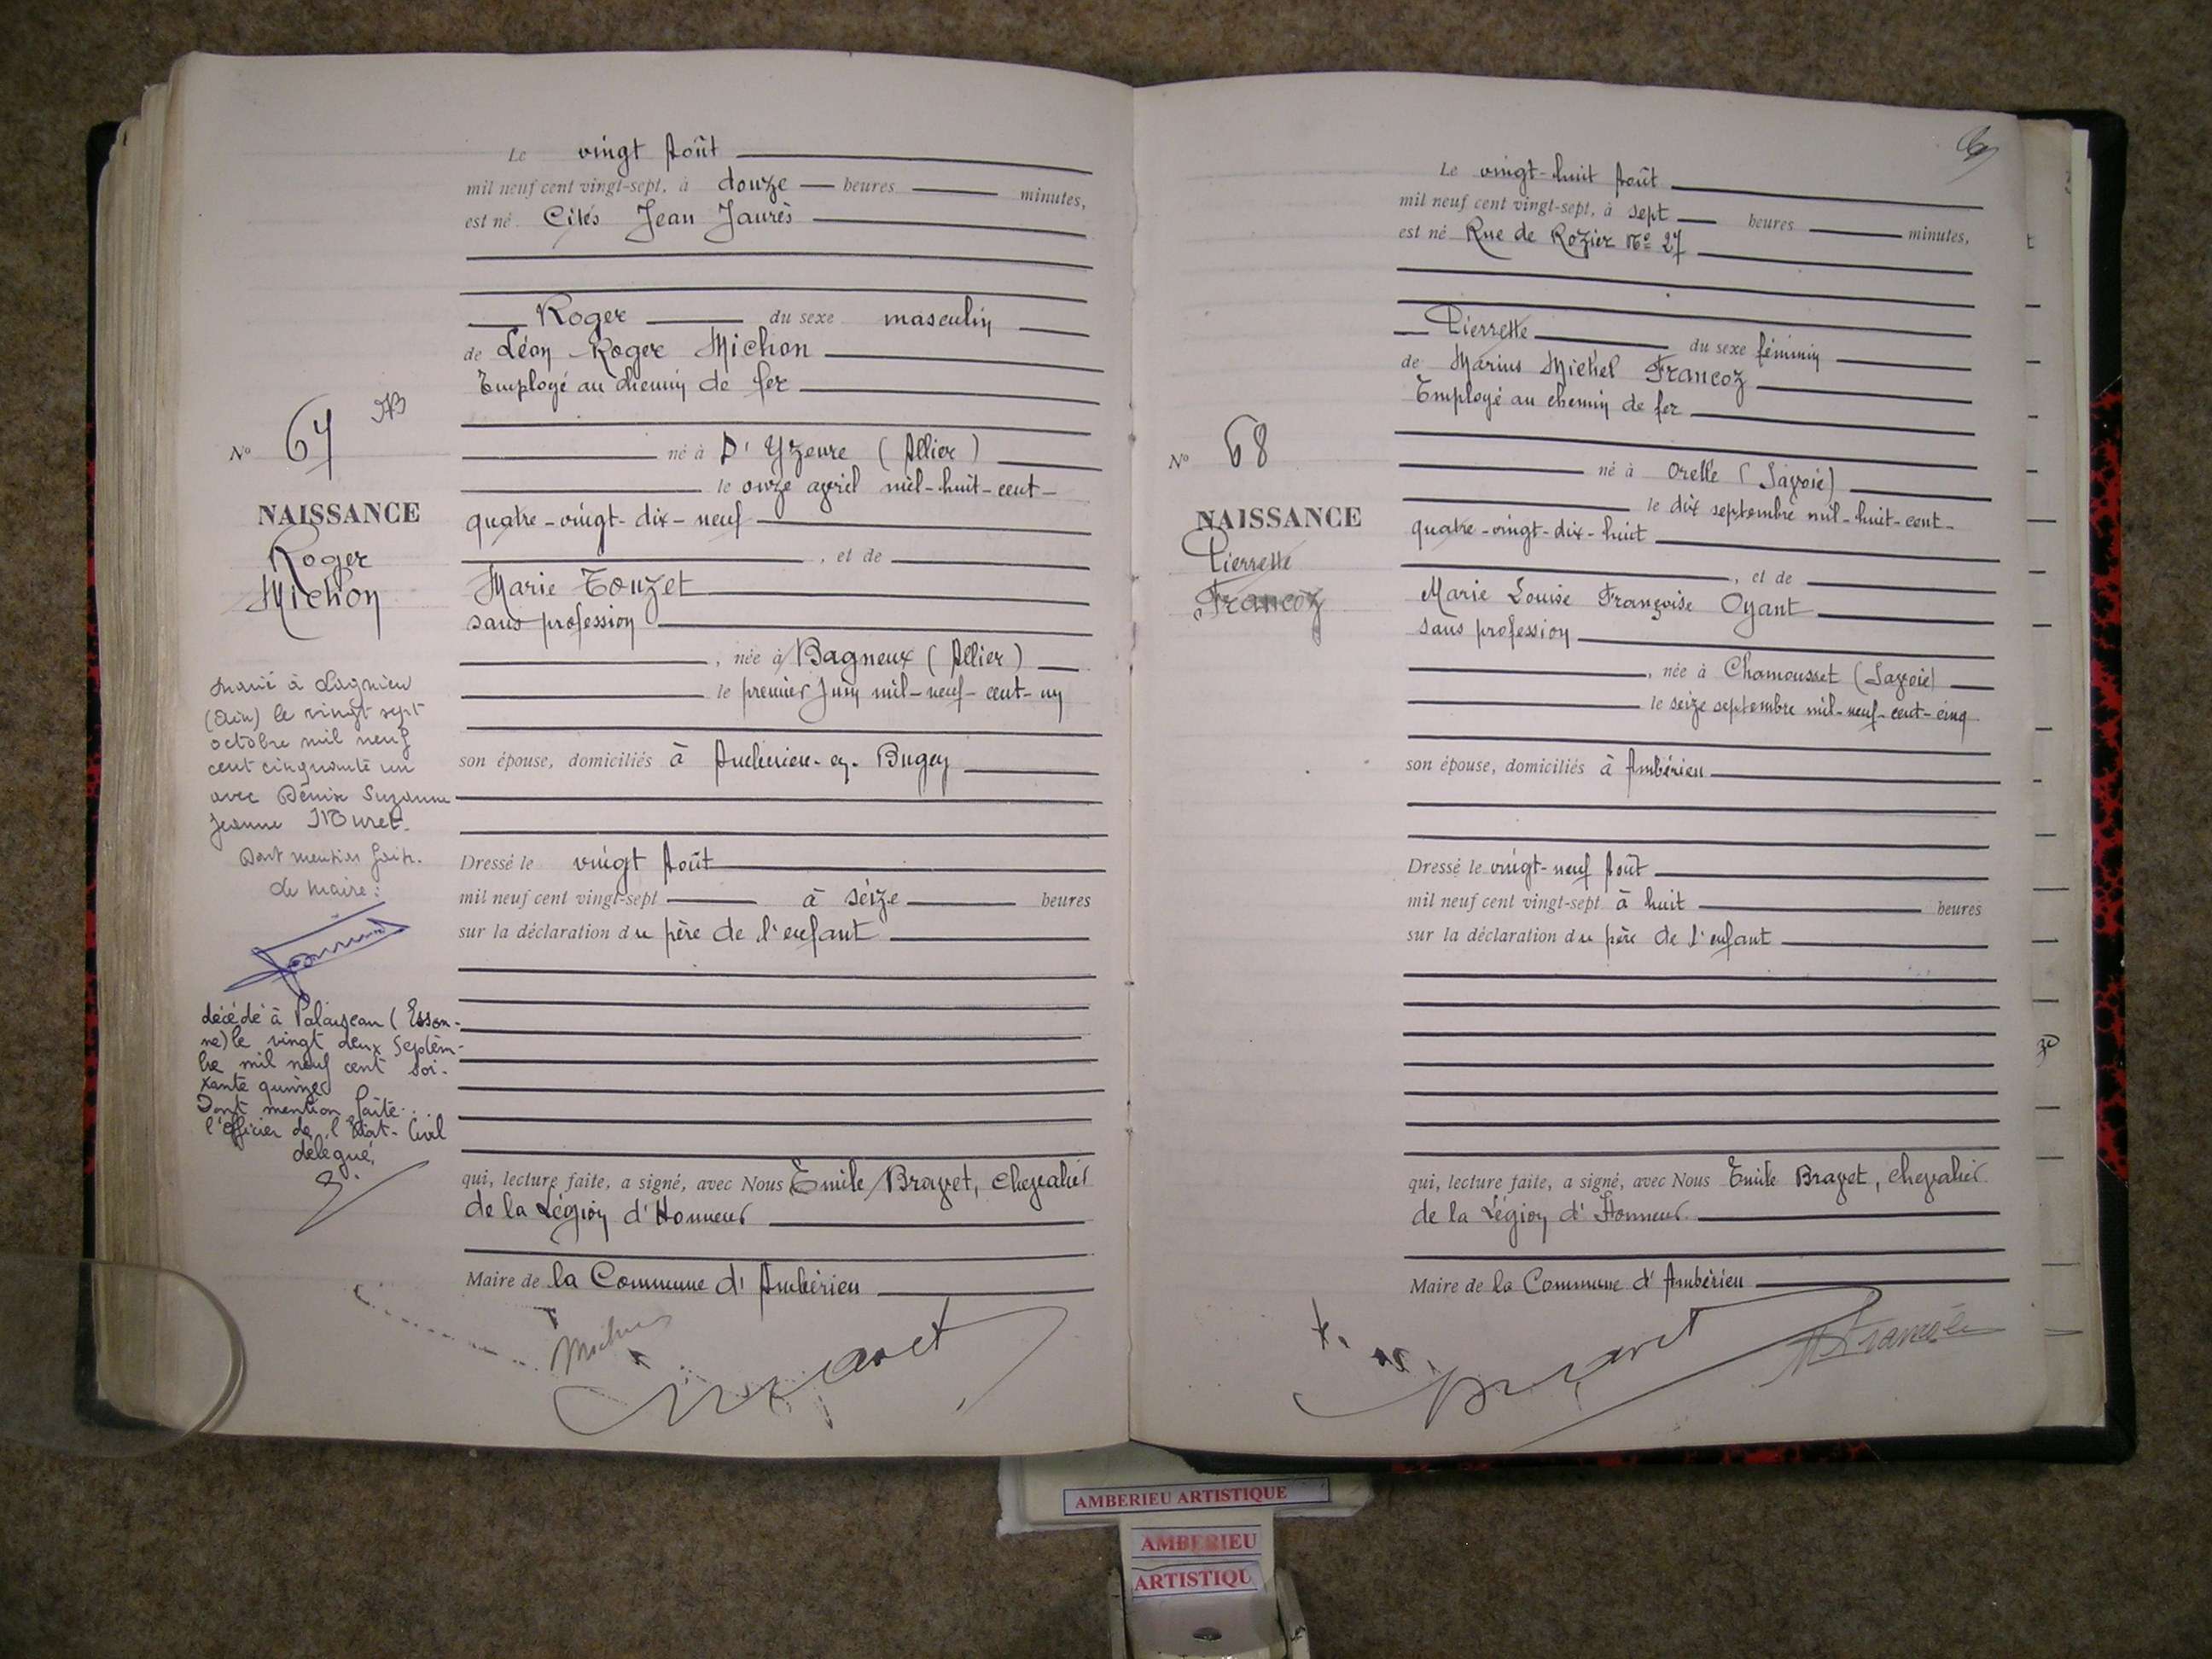 Le vingt Août
mil neuf cent vingt-sept, à douze heures minutes,
est né Cités Jean Jaurès
Roger du sexe masculin
de Léon Roger Michon
Employé au chemin de fer
né à D'Yzeure (Allier)
le onze avril mil-huit-cent-
quatre-vingt-dix-neuf
, et de
Marie Touzet
sans profession
, née à Bagneux (Allier)
le premier Juin mil-neuf-cent-un
son épouse, domiciliés à Ambérieu-en-Bugey
Dressé le vingt Août
mil neuf cent vingt-sept à seize heures
sur la déclaration du père de l'enfant
qui, lecture faite, a signé, avec Nous Emile Bravet, chevalier
de la Légion d'Honneur
Maire de la Commune d'Ambérieu
Michon
Bravet
No 67
NAISSANCE
Roger
Michon
marié à Lagnieu
(Ain) le vingt sept
octobre mil neuf
cent cinquante un
avec Denise Suzanne
Jeanne Mouret.
Dont mention faite.
Le Maire:
décédé à Palaiseau (Esson-
ne) le vingt deux Septem-
bre mil neuf cent soi-
xante quinze
Dont mention faite
l'Officier de l'Etat-Civil
délégué,
Le vingt-huit Août
mil neuf cent vingt-sept, à sept heures minutes,
est né Rue de Rozier No 27
Pierrette du sexe féminin
de Marius Michel Francoz
Employé au chemin de fer
né à Orelle (Savoie)
le dix septembre mil-huit-cent-
quatre-vingt-dix-huit
, et de
Marie Louise Françoise Oyant
sans profession
, née à Chamousset (Savoie)
le seize septembre mil-neuf-cent-cinq
son épouse, domiciliés à Ambérieu
Dressé le vingt-neuf Août
mil neuf cent vingt-sept à huit heures
sur la déclaration du père de l'enfant
qui, lecture faite, a signé, avec Nous Emile Bravet, chevalier
de la Légion d'Honneur
Maire de la Commune d'Ambérieu
Bravet
M Francoz
No 68
NAISSANCE
Pierrette
Francoz
AMBERIEU ARTISTIQUE
AMBERIEU
ARTISTIQU